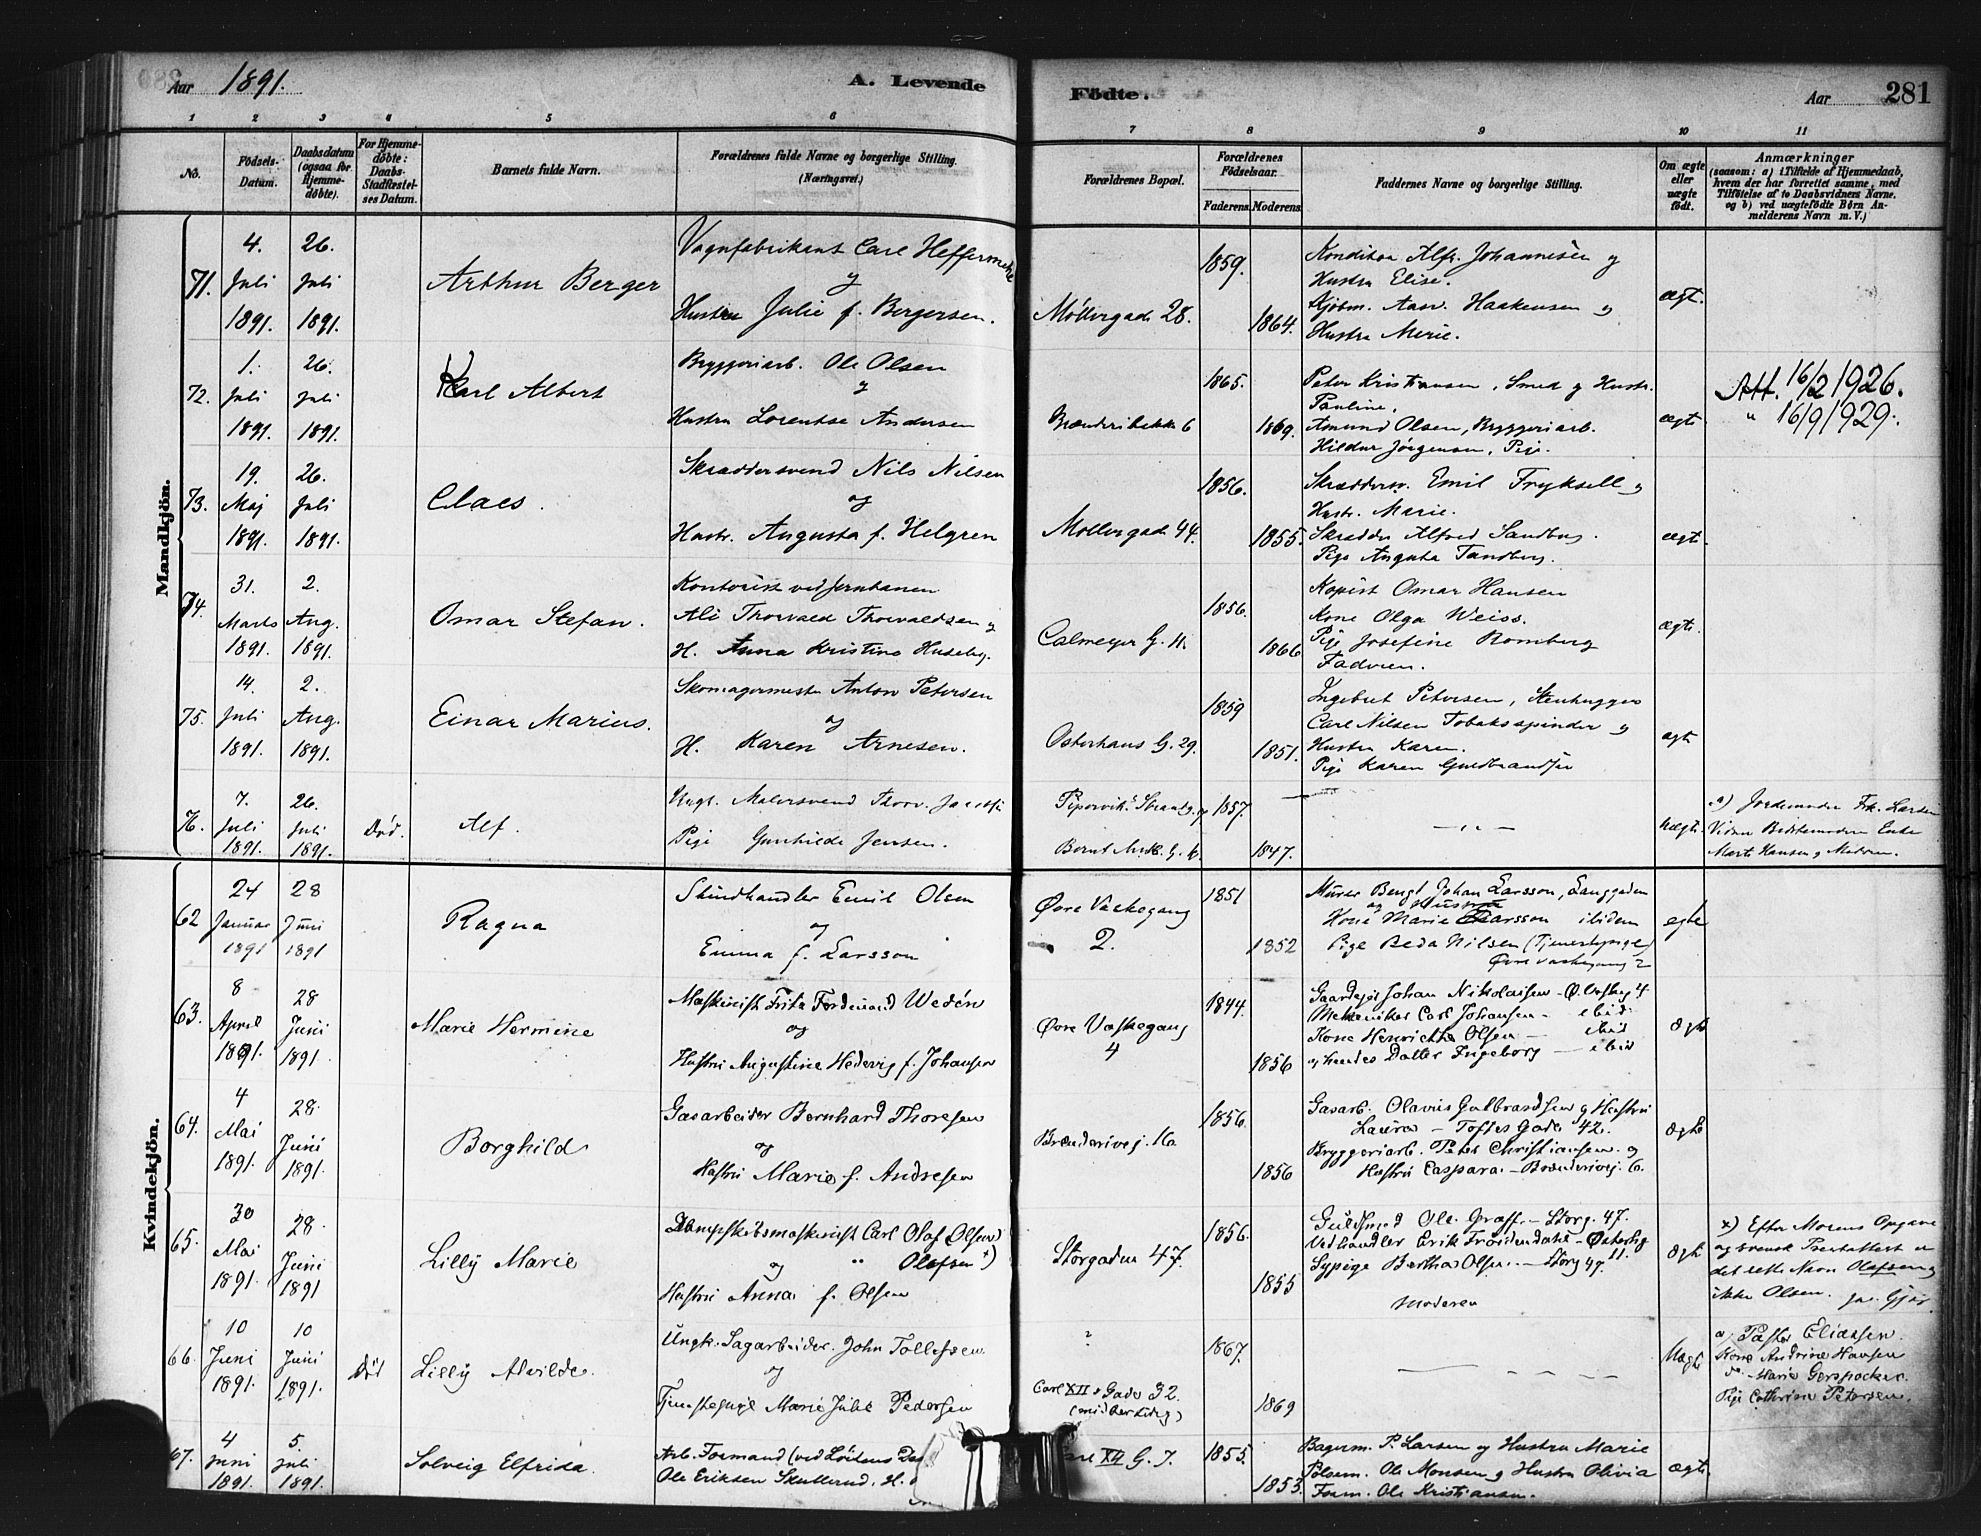 Aar 1891.
A. Levende
Födte.
Aar
281
1 2 3 4 5 6 7 8 9 10 11
No.
Födsels-
Datum.
Daabsdatum
(ogsaa for
Hjemme-
döbte).
For Hjemme-
döbte:
Daabs-
Stadfæstel-
ses Datum.
Barnets fulde Navn.
Forældrenes fulde Navne og borgerlige Stilling.
(Næringsvei.)
Forældrenes Bopæl.
Forældrenes
Födselsaar.
Faderens Moderens
Faddernes Navne og borgerlige Stilling.
Om ægte
eller
uægte
født.
Anmærkninger
(saasom: a) i Tilfælde af Hjemmedaab,
hvem der har forrettet samme, med
Tilföielse af to Daabsvidners Navne.
og b) ved uægtefödte Börn An-
melderens Navn m. V.)
Mandkjön.
71.
4.
Juli
1891.
26.
Juli
1891.
Arthur Berger
Vognfabrikant Carl
og
Hustru Julie f. Bergersen.
Möllergade 28.
1859.
1864.
Konditor Alfr. Johannesen og
Hustru Elise.
Kjöbm. Haakensen og
Hustru
ægt.
72.
1.
Juli
1891.
26.
Juli
1891.
Karl Albert
Bryggeriarb. Ole Olsen
og
Hustru Lorentse Andersen
6
1865.
1869.
Peter Kristiansen, Smed og Hustr.
Pauline.
Amund Olsen, Bryggeriarb.
Hildur Jörgensen, Pige.
ægte
Att. 16/2 1926.
" 16/9 1929.
73.
19.
Maj
1891.
26.
Juli
1891.
Claes.
Skræddersvend Nils Nilsen
og
Hustr. Augusta f. Helgren
Möllergade 44.
1856.
1855.
Skræddersv. Emil Fryksell og
Hustr. Marie.
Skrædder Alfred Sandberg.
Pige Augusta Tandberg.
ægt.
74.
31.
Marts
1891.
2.
Aug.
1891.
Omar Stefan.
Kontorist ved Jernbanen
Thorvald Thorvaldsen og
H. Anna Kristine Huseby.
Calmeyer G. 11.
1856.
1866
Kopist Omar Hansen
Kone Olga Weiss.
Pige Josefine Romberg
Faderen.
ægte.
75.
14.
Juli
1891.
2.
Aug.
1891.
Einar Marius.
Skomagermester Anton Petersen
og
H. Karen Arnesen.
Osterhaus G. 29.
1859
1851.
Ingebret Petersen, Stenhugger
Carl Nilsen Tobaksspinder og
Hustru Karen.
Pige Karen Guldbrandsen
ægt
76.
7.
Juli
1891.
26.
Juli
1891.
Död.
Alf.
Ungk. Malersvend Thorv.
Pige Gunhilde Jensen.
Bernt Ankers G. 6.
1857.
1847.
— " —
Uægte.
a) Jordemoder Frk. Larsen
Marte Hansen og Moderen.
Kvindekjön.
62
24
Januar
1891
28
Juni
1891
Ragna
Skindhandler Emil Olsen
og
Emma f. Larsson
Övre Vaskegang
2.
1851
1852
Murer Bengt Johan Larsson, Langgaden
og Hustru
Kone Marie Larsson ibidem
Pige Beda Nilsen (Tjenestepige)
Övre Vaskegang 2
egte
63.
8
April
1891.
28
Juni
1891
Marie Hermine
Maskinist Fritz Ferdinand Wedén
og
Hustru Augustine Hedevig f. Johansen
Övre Vaskegang
4
1844
1856
Gaardejer Johan Nikolaisen - Ö. Vaskeg 4
Mekaniker Carl Johansen - ibid
Kone Henriette Olsen — ibid
og hendes Datter Ingeborg — ibid
Ægte
64.
4
Mai
1891.
28
Juni
1891.
Borghild
Gasarbeider Bernhard Thoresen
og
Hustru Marie f. Andresen
Brænderivej. 16
1856.
1856
Gasarb. Olavus Gulbrandsen og Hustru
Laura - Toftes Gade 42.
Bryggeriarb. Peter Christiansen og
Hustru Caspara. - Brænderivej. 6.
Ægte
65.
30
Mai
1891.
28
Juni
1891
Lilly Marie
Dampskibsmaskinist Carl Olaf Olsen
og " Olafsen x)
Hustru Anna f. Olsen
Storgaden 47.
1856.
1855
Guldsmed Ole Graff. - Storg. 47.
Vedhandler Erik
Sypige Bertha Olsen. - Storg 47.
Moderen
Ægte
x) Efter Morens Opgave
og svensk Præsteattest er
det rette Navn Olafsen og
ikke Olsen.
66.
10
Juni
1891.
10
Juni
1891.
Död
Lilly Alvilde.
Ungk. Sagarbeider. John Tollefsen
og
Tjenestepige Marie Julie Pedersen
?
Carl XII s Gade 32.
(midlertidig)
1867.
1869
— — — —
Uægte
a. Pastor Eliassen.
Kone Andrine Hansen
do. - Marie
Pige Cathrine Petersen.
67.
4
Juni
1891.
5.
Juli
1891.
Solveig Elfrida.
Arb. Formand (ved Löitens
Ole Eriksen Skullerud. H.
XII G. 7.
1855.
1853.
Bagerm. P. Larsen og Hustru Marie
Pölsem. Ole Monsen og Hustru Olivia
Form. Ole Kristiansen.
ægte.